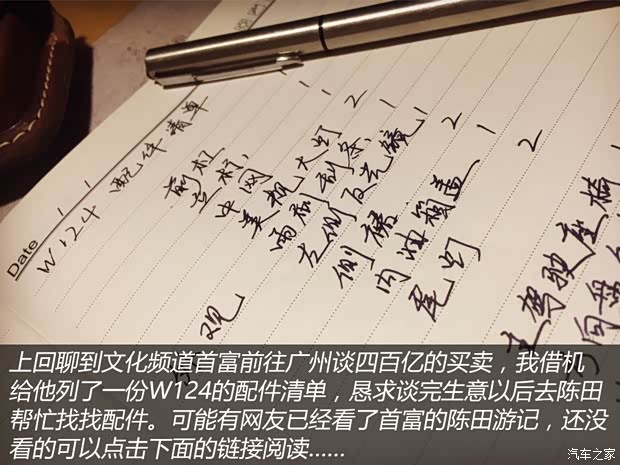 Date / /
W124 配件清单
观
前杠
杠 1
中网 1
美规大灯 2
雨刮刮条 1
左侧反光镜 1
侧裙 2
内油箱盖 1
尾灯 2
主驾驶座椅
方向盘
上回聊到文化频道首富前往广州谈四百亿的买卖，我借机
给他列了一份W124的配件清单，恳求谈完生意以后去陈田
帮忙找找配件。可能有网友已经看了首富的陈田游记，还没
看的可以点击下面的链接阅读......
汽车之家